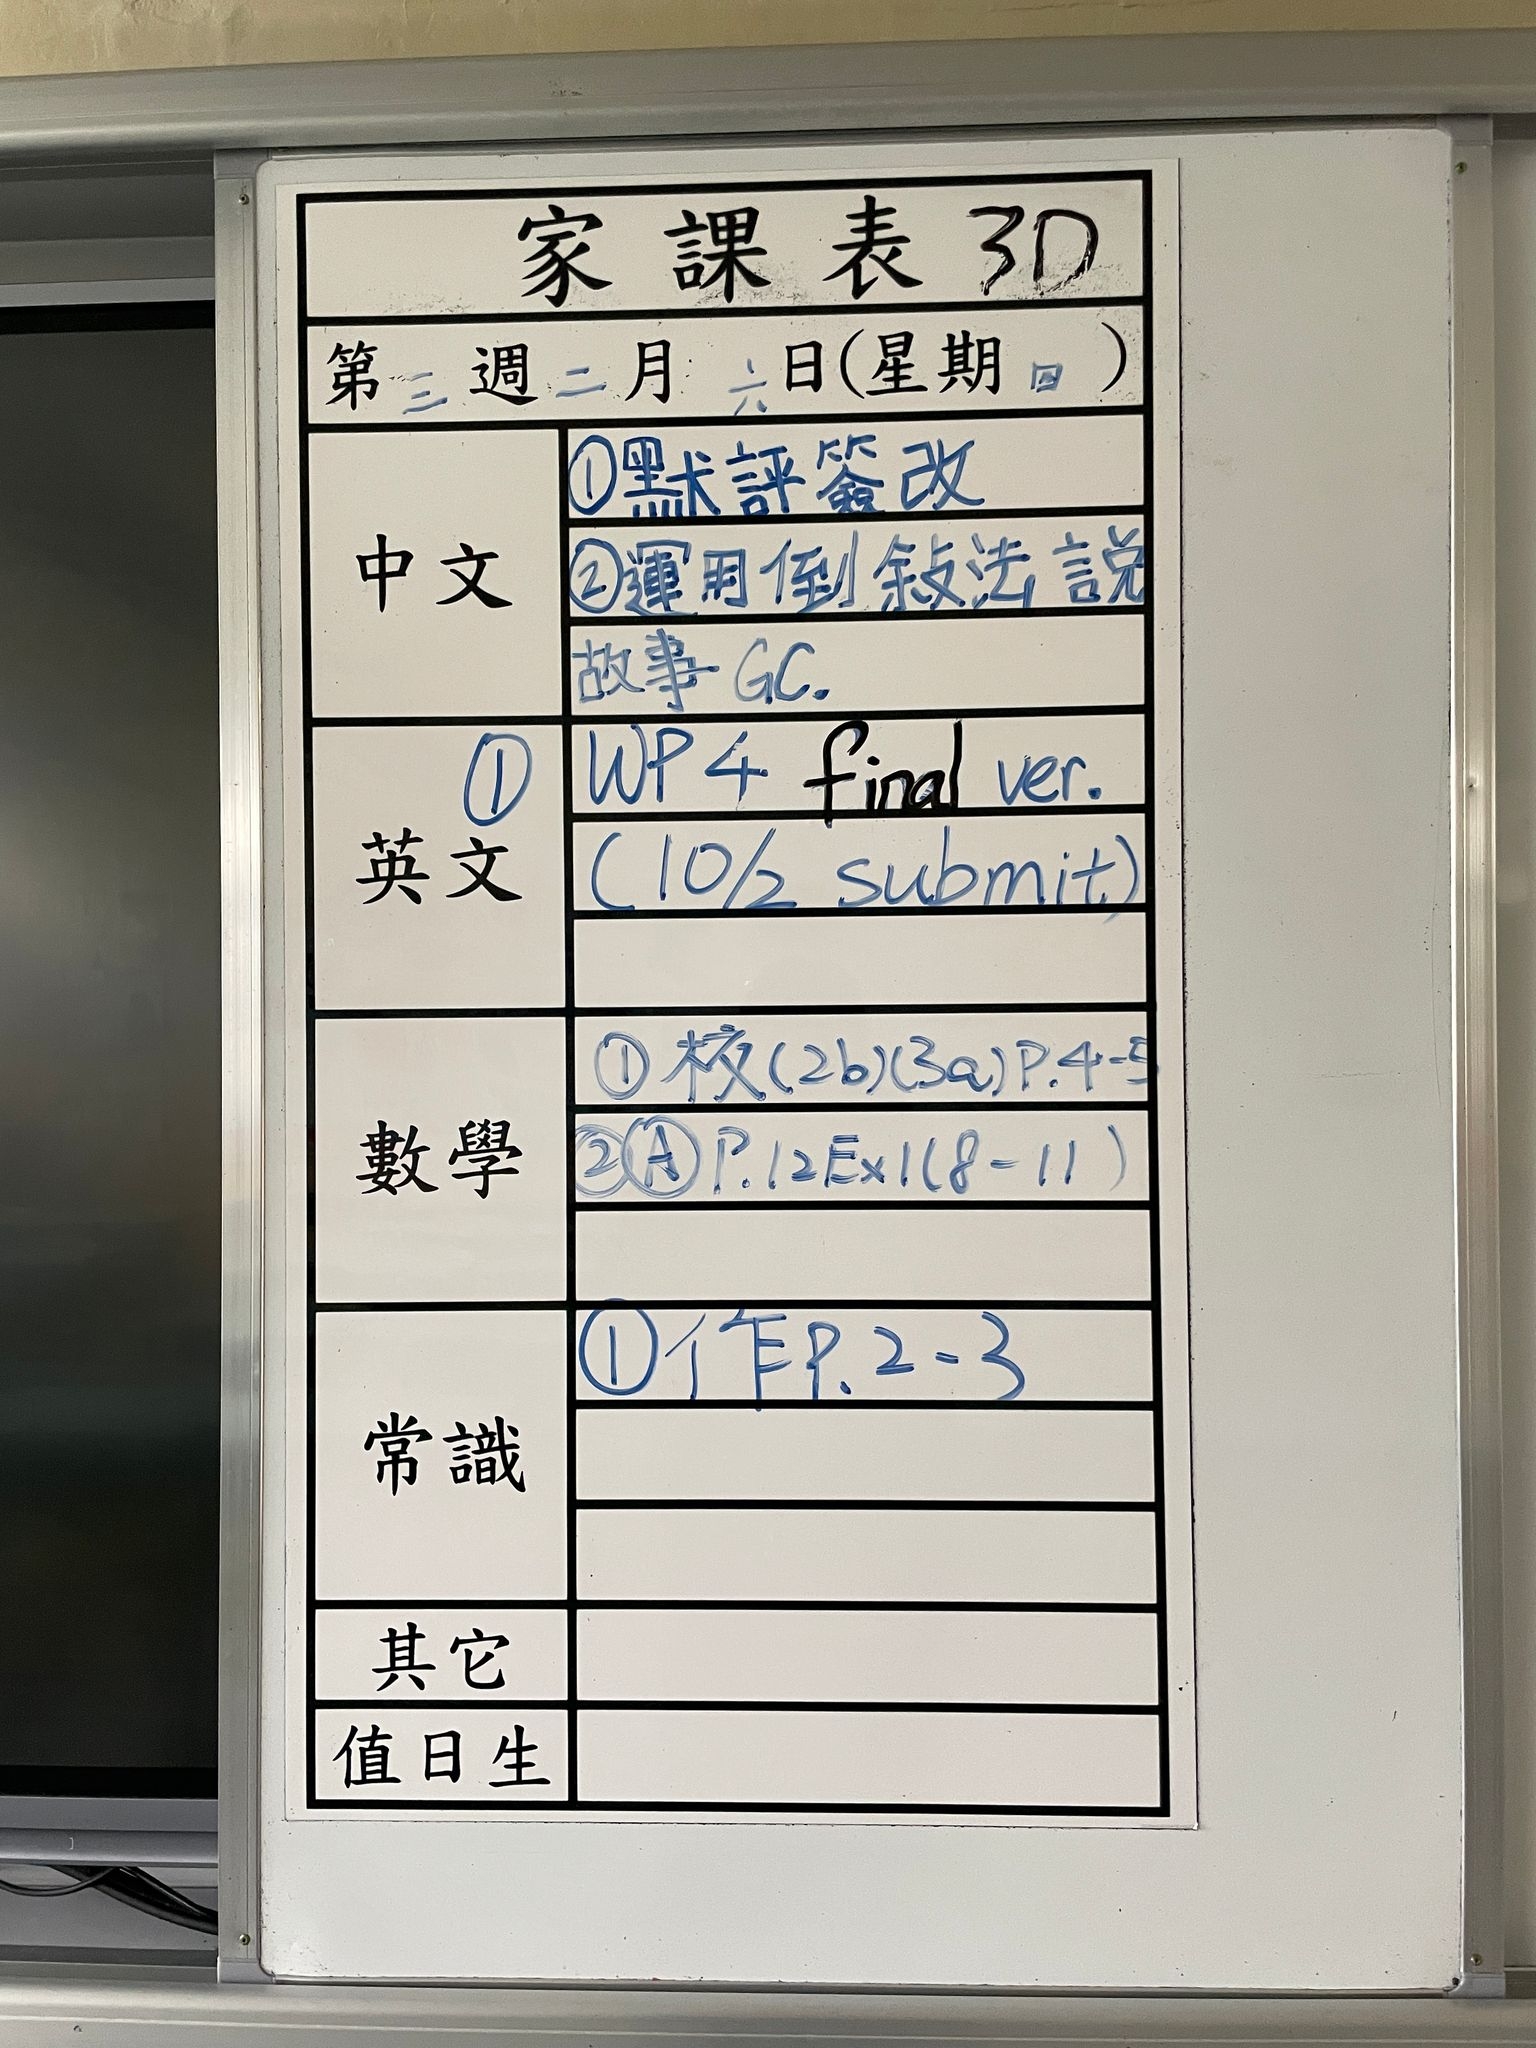 家課表 3D
第三週二月六日(星期四)
中文
①默評簽改
②運用倒敍法說
故事GC.
英文
① WP4 final ver.
(10/2 submit)
數學
①校(2b)(3a)P.4-5
②Ⓐ P.12Ex1(8-11)
常識
①作P.2-3
其它
值日生